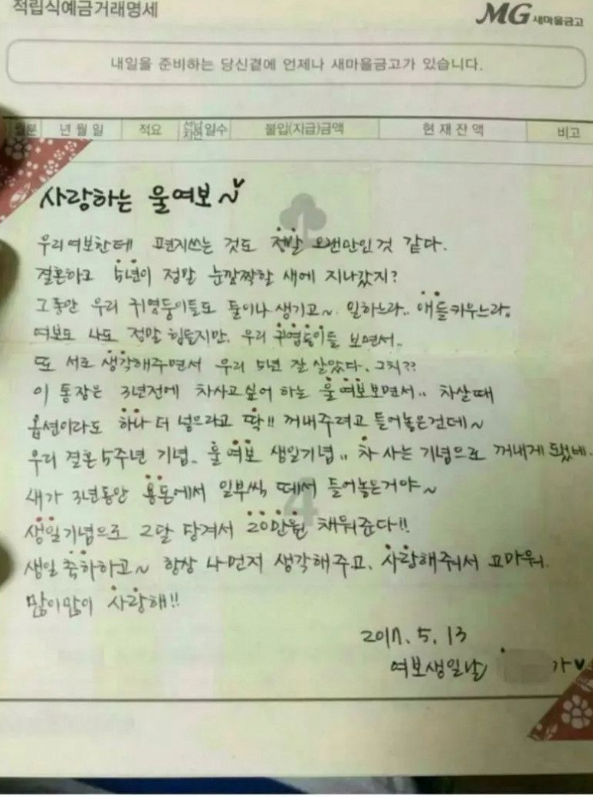 적립식예금거래명세
MG 새마을금고
내일을 준비하는 당신곁에 언제나 새마을금고가 있습니다.
년 월 일 적요 선납 지연 일수 불입(지급)금액 현 재 잔 액 비고
사랑하는 울여보~♥
우리여보한테 편지쓰는 것도 정말 오랜만인것 같다.
결혼하고 5년이 정말 눈깜짝할 새에 지나갔지?
그동안 우리 귀염둥이들도 둘이나 생기고~ 일하느라.. 애들키우느라,
여보도 나도 정말 힘들지만. 우리 귀염둥이들 보면서..
또 서로 생각해주면서 우리 5년 잘 살았다. 그치??
이 통장은 3년전에 차사고싶어 하는 울여보보면서.. 차살때
옵션이라도 하나 더 넣으라고 딱!! 꺼내주려고 들어놓은건데~
우리 결혼 5주년 기념.. 울여보 생일기념.. 차 사는 기념으로 꺼내게 됐네.
내가 3년동안 용돈에서 일부씩 떼서 들어놓은거야~
생일기념으로 2달 당겨서 20만원 채워준다!!
생일 축하하고~ 항상 나먼저 생각해주고, 사랑해줘서 고마워.
많이많이 사랑해!!
2017. 5. 13
여보생일날 가♥